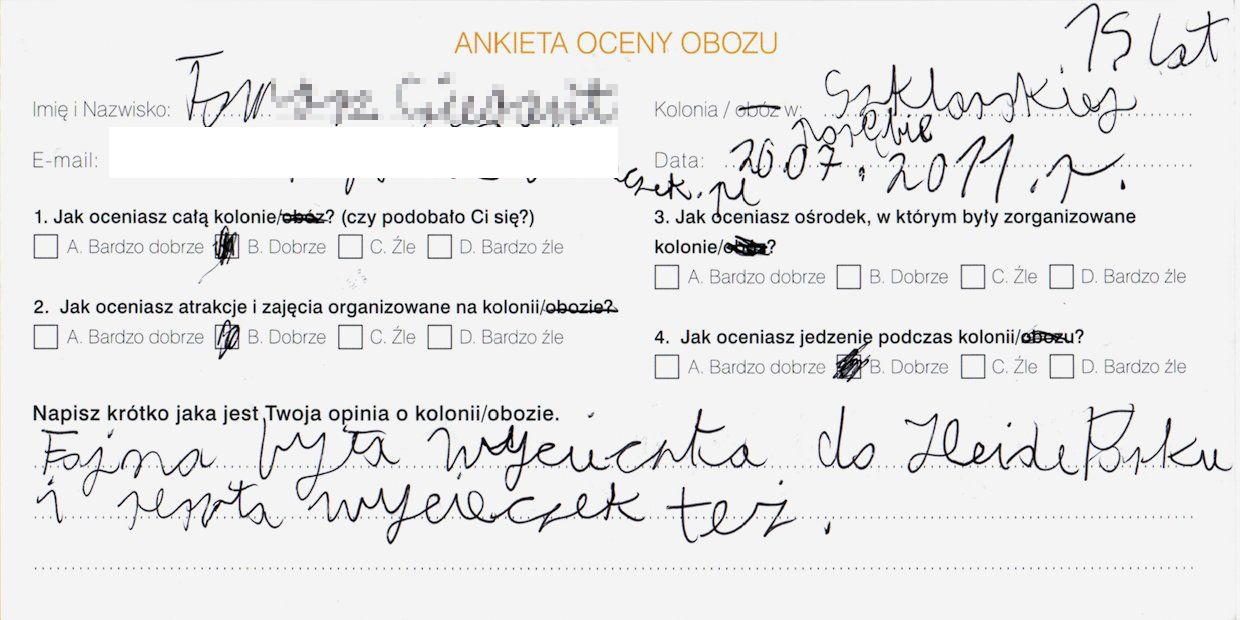 ANKIETA OCENY OBOZU
15 lat
Imię i Nazwisko:
Kolonia / obóz w: Szklarskiej
Porębie
E-mail:
Data: 20.07.2011.r.
1. Jak oceniasz całą kolonie/obóz? (czy podobało Ci się?)
A. Bardzo dobrze B. Dobrze C. Źle D. Bardzo źle
2. Jak oceniasz atrakcje i zajęcia organizowane na kolonii/obozie?
A. Bardzo dobrze B. Dobrze C. Źle D. Bardzo źle
3. Jak oceniasz ośrodek, w którym były zorganizowane
kolonie/obóz?
A. Bardzo dobrze B. Dobrze C. Źle D. Bardzo źle
4. Jak oceniasz jedzenie podczas kolonii/obozu?
A. Bardzo dobrze B. Dobrze C. Źle D. Bardzo źle
Napisz krótko jaka jest Twoja opinia o kolonii/obozie.
Fajna była wycieczka do Heide Parku
i reszta wycieczek też.